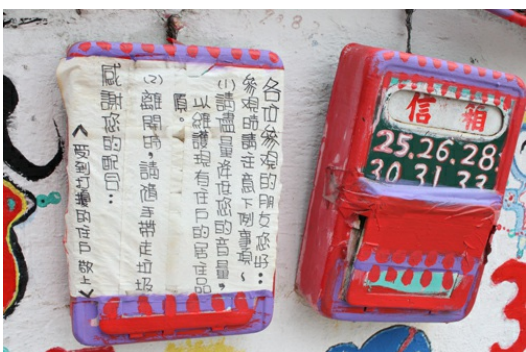 各位參觀的朋友您好：
參觀時請注意下例事項～
(1)請儘量降低您的音量，
以維護現有住戶的居住品
質。
(2)離開時，請隨手帶走垃圾
感謝您的配合…
＜受到打擾的住戶敬上＞
信箱
25.26.28
30 31 33